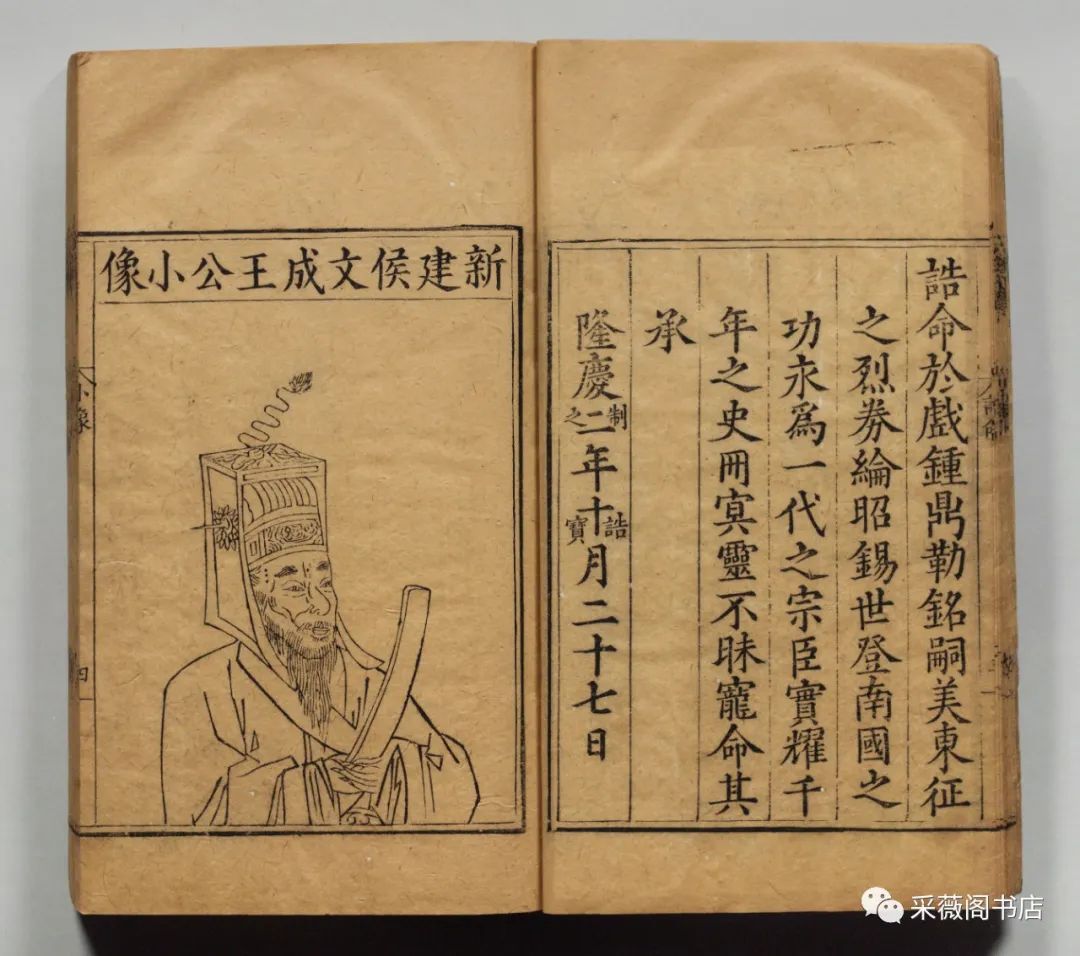 誥命於戲鍾鼎勒銘嗣美東征
之烈券綸昭錫世登南國之
功永爲一代之宗臣實耀千
年之史冊冥靈不昧寵命其
承
隆慶二年十月二十七日
制
之
誥
寶
新建侯文成王公小像
小像
四
采薇阁书店